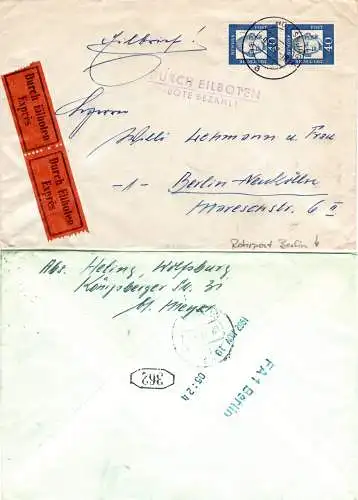 Eilbrief!
DEUTSCHE BUNDESPOST 40
DEUTSCHE BUNDESPOST 40
DURCH EILBOTEN
BOTE BEZAHLT
Durch Eilboten
Exprès
Durch Eilboten
Exprès
Herrn
Willi Lehmann u. Frau
-1- Berlin-Neukölln
Mareschstr. 6 II
Rohrpost Berlin
Abs. Heling, Wolfsburg
Königsberger Str. 31
b/ Meyer
362
05:24
FA 1 Berlin